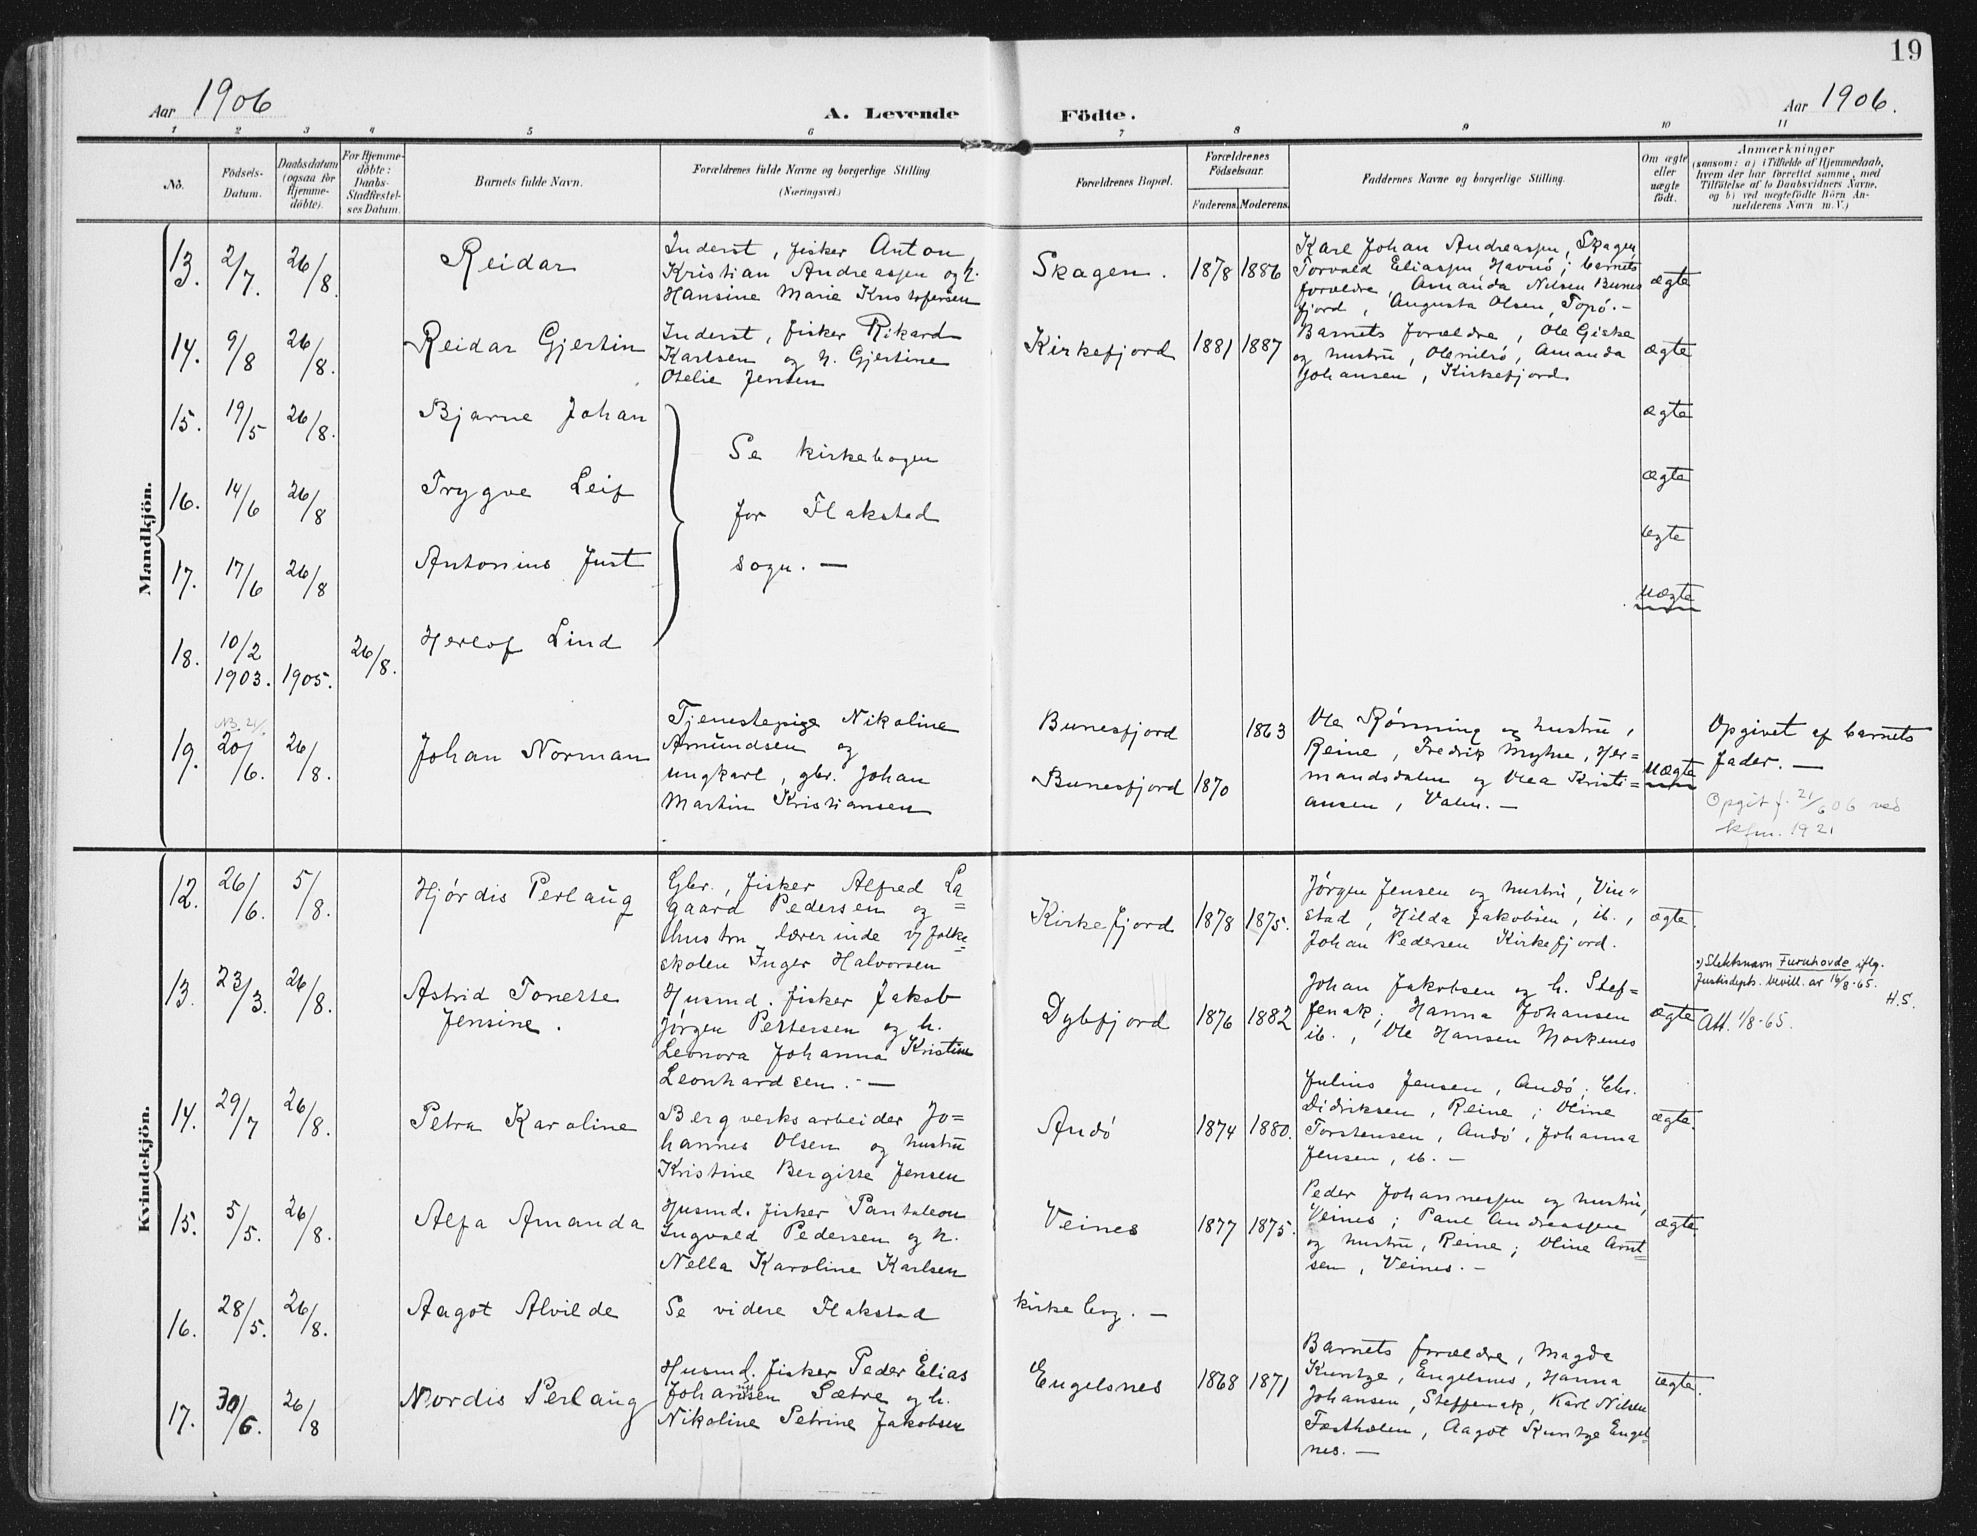 19
Aar 1906
A. Levende Födte.
Aar 1906.
1 2 3 4 5 6 7 8 9 10 11
No.
Födsels-
Datum.
Daabsdatum
(ogsaa for
Hjemme-
döbte).
For Hjemme-
döbte:
Daabs-
Stadfæstel-
ses Datum.
Barnets fulde Navn.
Forældrenes fulde Navne og borgerlige Stilling
(Næringsvei.)
Forældrenes Bopæl.
Forældrenes
Födselsaar.
Faderens. Moderens.
Faddernes Navne og borgerlige Stilling.
Om ægte
eller
uægte
födt.
Anmærkninger
(saasom: a) i Tilfælde af Hjemmedaab,
hvem der har forrettet samme, med
Tilföielse af to Daabsvidners Navne,
og b) ved uægtefödte Börn An-
melderens Navn m. V.)
Mandkjön.
13. 2/7. 26/8. Reidar
Inderst, fisker Anton
Kristian Andreassen og h.
Hansine Marie Kristofersen
Skagen. 1878 1886
Karl Johan Andreassen, Skagen,
Torvald Eliassen, Havnö; barnets
forældre, Amanda Nilsen Bunes
fjord, Augusta Olsen, Topö. —
ægte
14. 9/8 26/8. Reidar Gjertin
Inderst, fisker Rikard
Karlsen og h. Gjertine
Otelie Jensen
Kirkefjord 1881 1887
Barnets forældre, Ole Giske
og hustru, Olenilsö, Amanda
Johansen, Kirkefjord.
ægte
15. 19/5 26/8. Bjarne Johan
ægte
16. 14/6 26/8 Trygve Leif
ægte
17. 17/6 26/8 Antonius Just
ægte
18. 10/2 1903. 1905. 26/8. Herlof Lind
Uægte
Se kirkebogen
for Flakstad
sogn. —
19. NB. 21/
20/6. 26/8. Johan Norman
Tjenestepige Nikoline
Amundsen og
ungkarl, gbr. Johan
Martin Kristiansen
Bunesfjord 1863
Bunesfjord 1870
Ole Rønning og hustru,
Reine, Fredrik Myhre, Her-
mandsdalen og Olea Kristi=
ansen, Valen. —
Uægte
Opgivet af barnets
fader. —
Opgit f. 21/6 06 ved
kfm. 1921
Kvindekjön.
12. 26/6. 5/8. Hjørdis Perlaug
Gbr., fisker Alfred La=
gaard Pedersen og
hustru lærerinde v/ folke=
skolen Inger Halvorsen
Kirkefjord 1878 1875.
Jørgen Jensen og hustru, Vin"
stad, Hilda Jakobsen, ib.,
Johan Pedersen Kirkefjord.
ægte
13. 23/3. 26/8. Astrid Tonette
Jensine.
Husmd. fisker Jakob
Jørgen Pettersen og h.
Leonora Johanna Kristine
Leonhardsen. —
Dybfjord 1876 1882
Johan Jakobsen og h. Stef=
fenak; Hanna Johansen
ib., Ole Hansen Moskenes
ægte
Slektsnavn Furuhovde iflg.
Justisdepts. bevill. av 16/8-65.
H.S.
Att. 1/8-65.
14. 29/7 26/8. Petra Karoline
Bergverksarbeider Jo=
hannes Olsen og hustru
Kristine Bergitte Jensen
Andö 1874 1880.
Julius Jensen, Andö; Chr.
Didriksen, Reine; Oline
Torstensen, Andö, Johanna
Jensen, ib. —
ægte.
15. 5/5. 26/8. Alfa Amanda
Husmd. fisker Pantaleon
Ingvald Pedersen og h.
Nella Karoline Karlsen
Veines 1877 1875.
Peder Johannessen og hustru,
Veines; Paul Andreassen
og hustru, Reine; Oline Arnt=
sen, Veines. —
ægte
16. 28/5. 26/8. Aagot Alvilde
Se videre Flakstad kirkebog. —
17. 30/6. 26/8 Nordis Perlaug
Husmd. fisker Peder Elias
Johansen Sætre og h.
Nikoline Petrine Jakobsen
Engelsnes 1868 1871
Barnets forældre, Magda
Kuntze, Engelsnes, Hanna
Johansen, Steffenak, Karl Nilsen
Festhælen, Aagot Kuntze Engel-
nes. —
ægte.